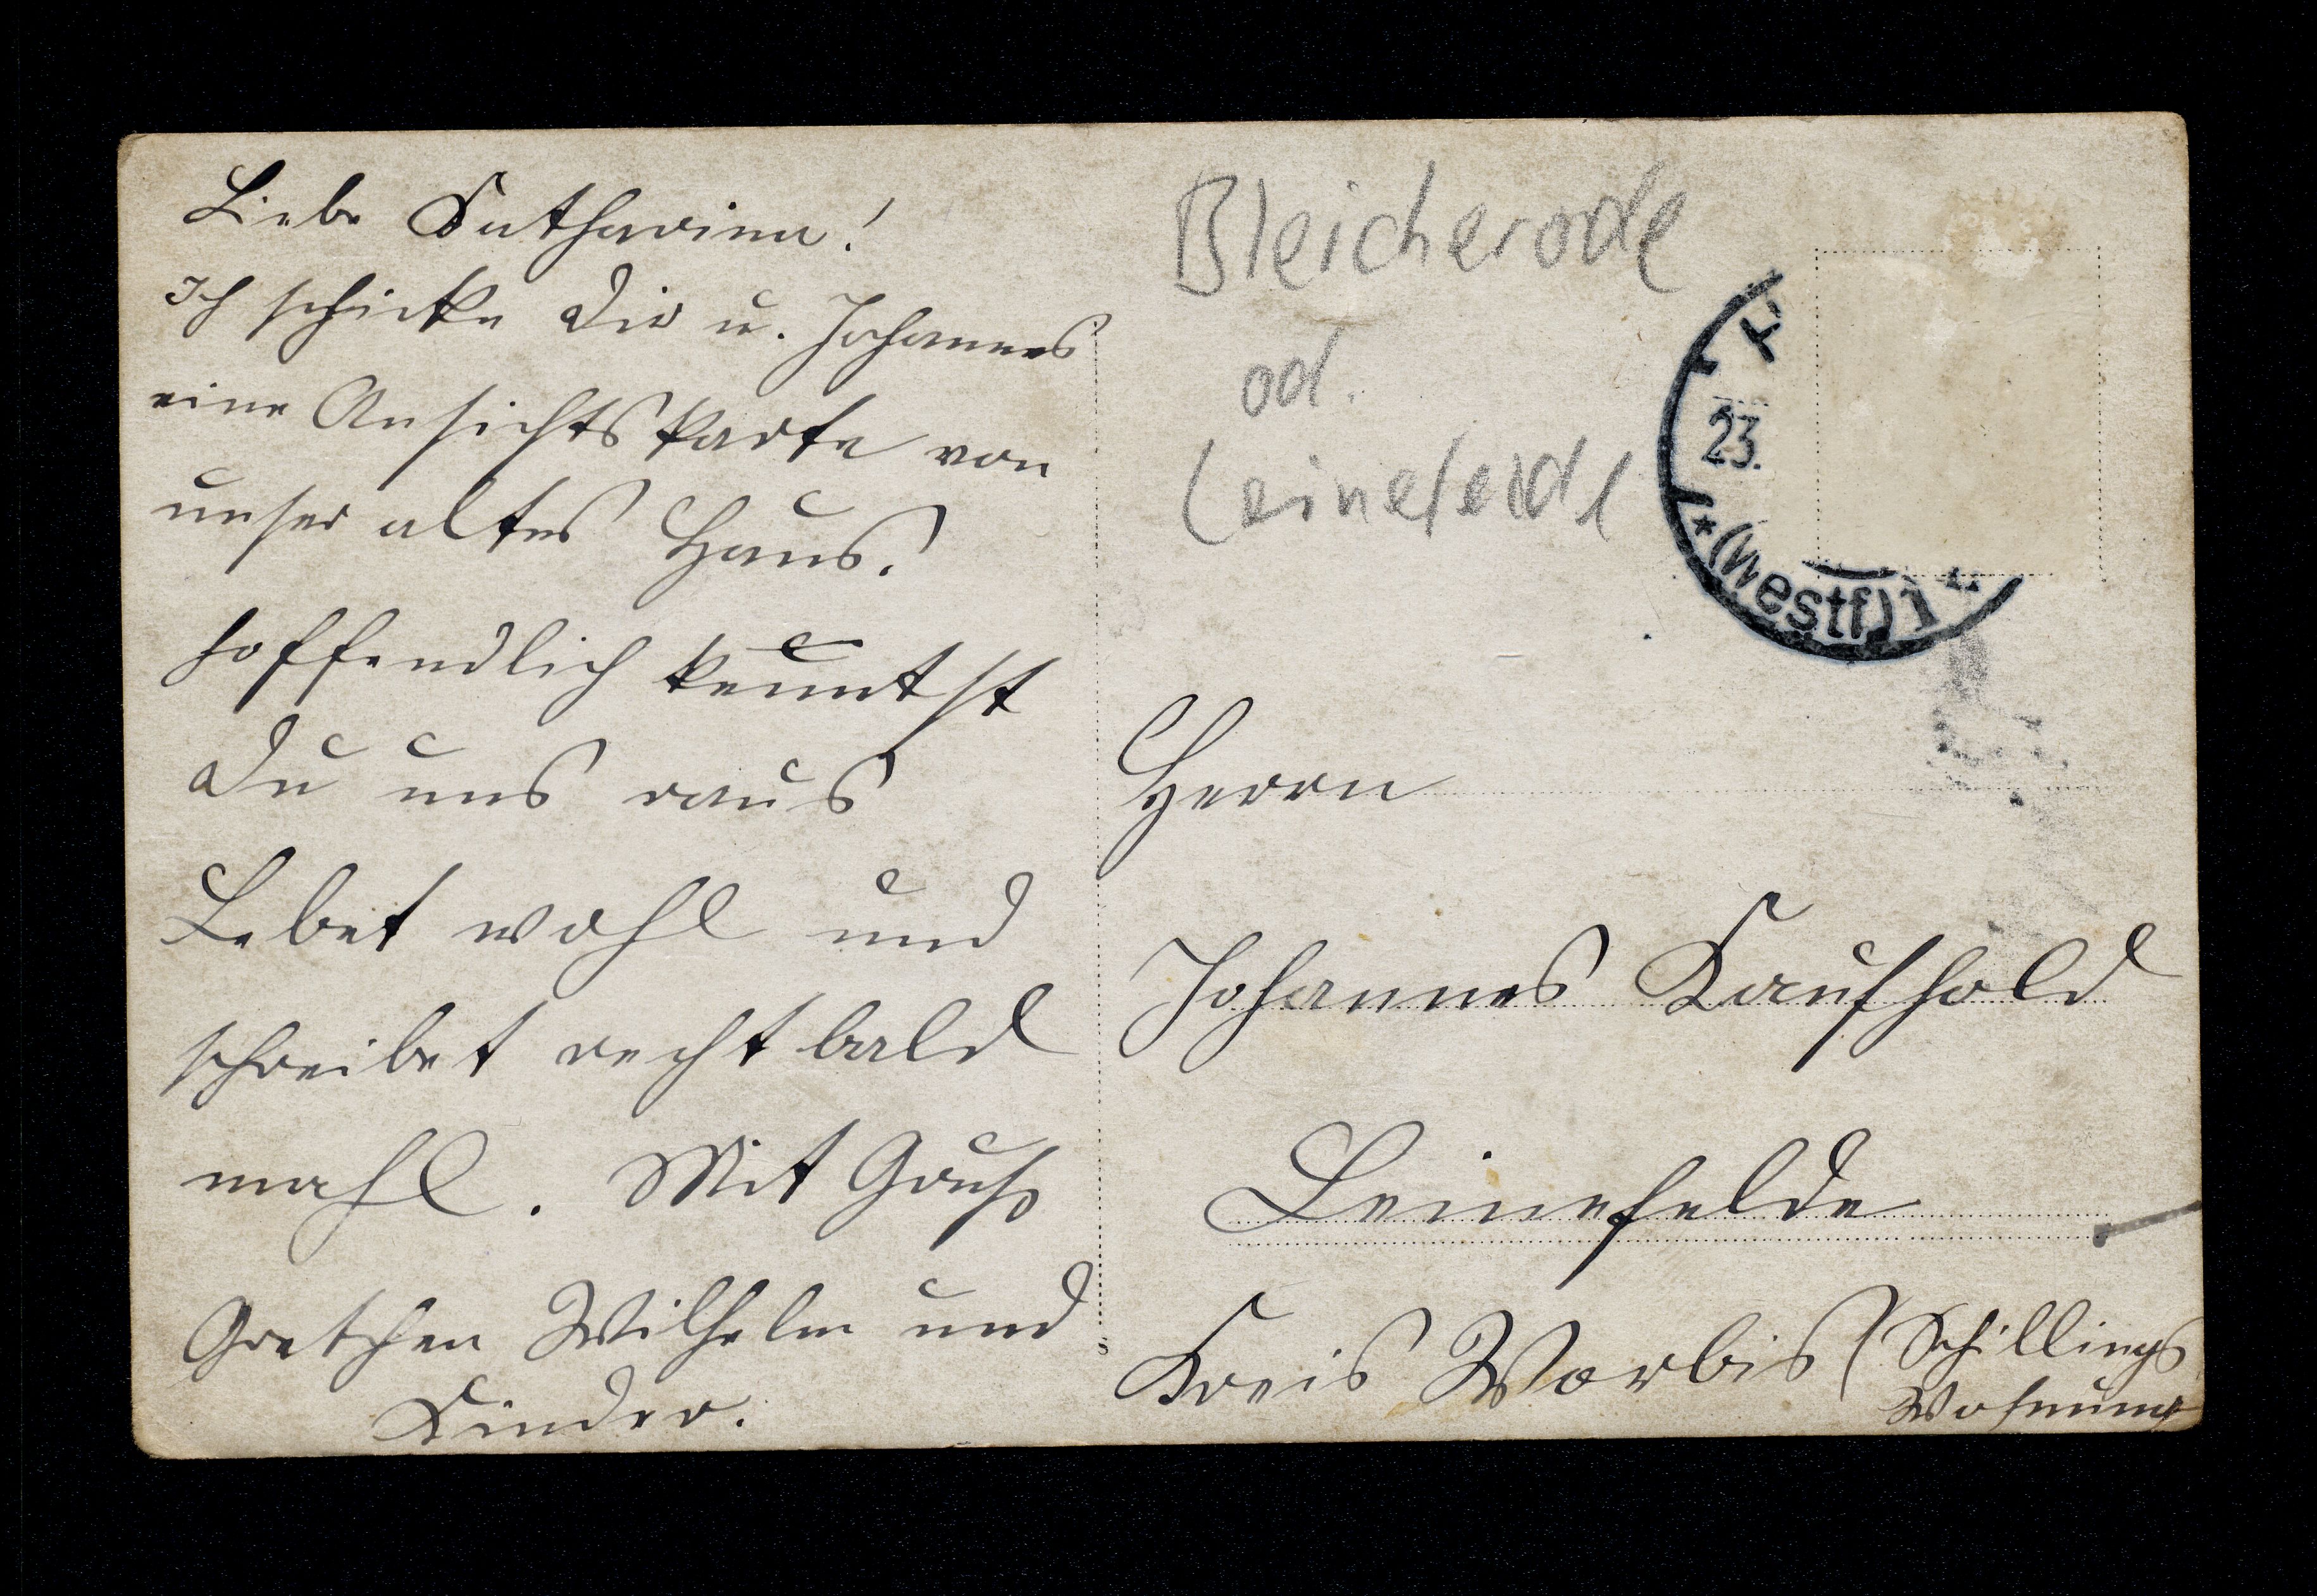 Liebe Katharina!
Ich schicke Dir u. Johannes
eine Ansichtskarte von
unser altes Haus.
hoffendlich kenntst
Du uns raus
Lebet wohl und
schreibet recht bald
mahl. Mit Gruß
Gretchen Wilhelm und
Kinder.
Bleicherode
od.
Leinefelde
23.
*(Westf) 1
Herrn
Johannes Kaufhold
Leinefelde
Kreis Worbis (Schillings
Wohnung